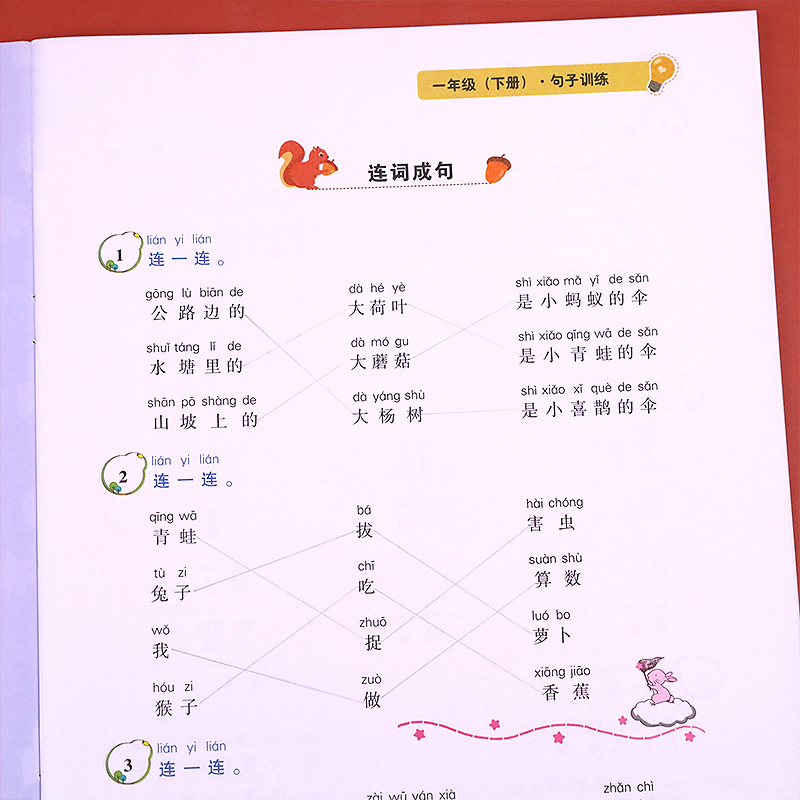 一年级（下册）·句子训练
连词成句
1
lián yi lián
连一连。
gōng lù biān de dà hé yè shì xiǎo mǎ yǐ de sǎn
公路边的 大荷叶 是小蚂蚁的伞
shuǐ táng lǐ de dà mó gu shì xiǎo qīng wā de sǎn
水塘里的 大蘑菇 是小青蛙的伞
shān pō shàng de dà yáng shù shì xiǎo xǐ què de sǎn
山坡上的 大杨树 是小喜鹊的伞
2
lián yi lián
连一连。
qīng wā bá hài chóng
青蛙 拔 害虫
tù zi chī suàn shù
兔子 吃 算数
wǒ zhuō luó bo
我 捉 萝卜
hóu zi zuò xiāng jiāo
猴子 做 香蕉
3
lián yi lián
连一连。
zài wū yán xià zhǎn chì